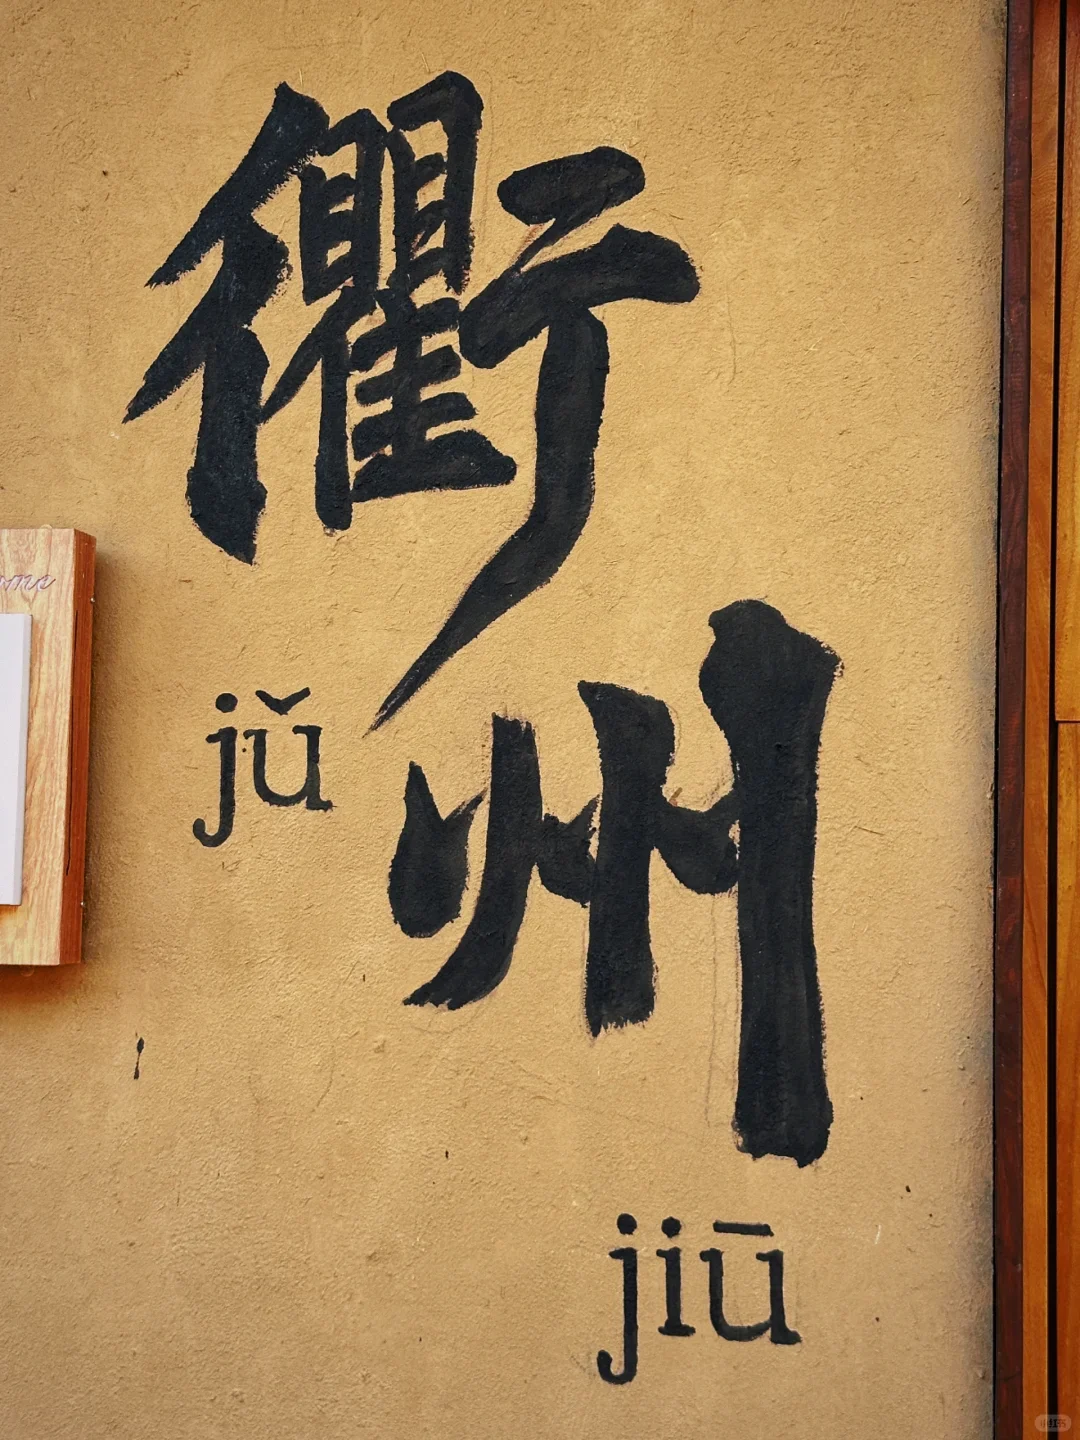 衢
jǔ
州
jiū